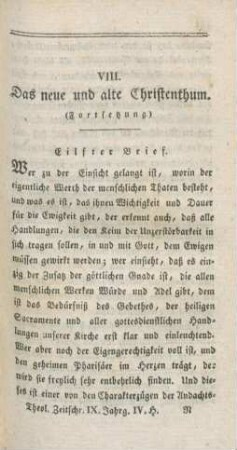 VIII.
Das neue und alte Christenthum.
(Fortsetzung)
Eilfter Brief.
Wer zu der Einsicht gelangt ist, worin der
eigentliche Werth der menschlichen Thaten besteht,
und was es ist, das ihnen Wichtigkeit und Dauer
für die Ewigkeit gibt, der erkennt auch, daß alle
Handlungen, die den Keim der Unzerstörbarkeit in
sich tragen sollen, in und mit Gott, dem Ewigen
müssen gewirkt werden; wer einsieht, daß es ein-
zig der Zusatz der göttlichen Gnade ist, die allen
menschlichen Werken Würde und Adel gibt, dem
ist das Bedürfniß des Gebethes, der heiligen
Sacramente und aller gottesdienstlichen Hand-
lungen unserer Kirche erst klar und einleuchtend.
Wer aber noch der Eigengerechtigkeit voll ist, und
den geheimen Pharisäer im Herzen trägt, der
wird sie freylich sehr entbehrlich finden. Und die-
ses ist einer von den Charakterzügen der Andachts-
Theol. Zeitschr. IX. Jahrg. IV. H. N